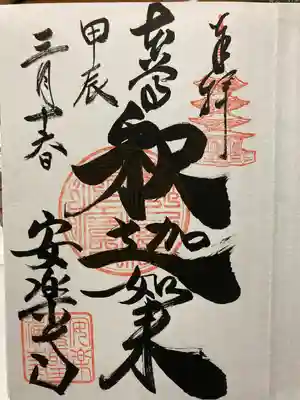 奉拝
本尊
釈迦如来
甲辰
三月
安楽寺